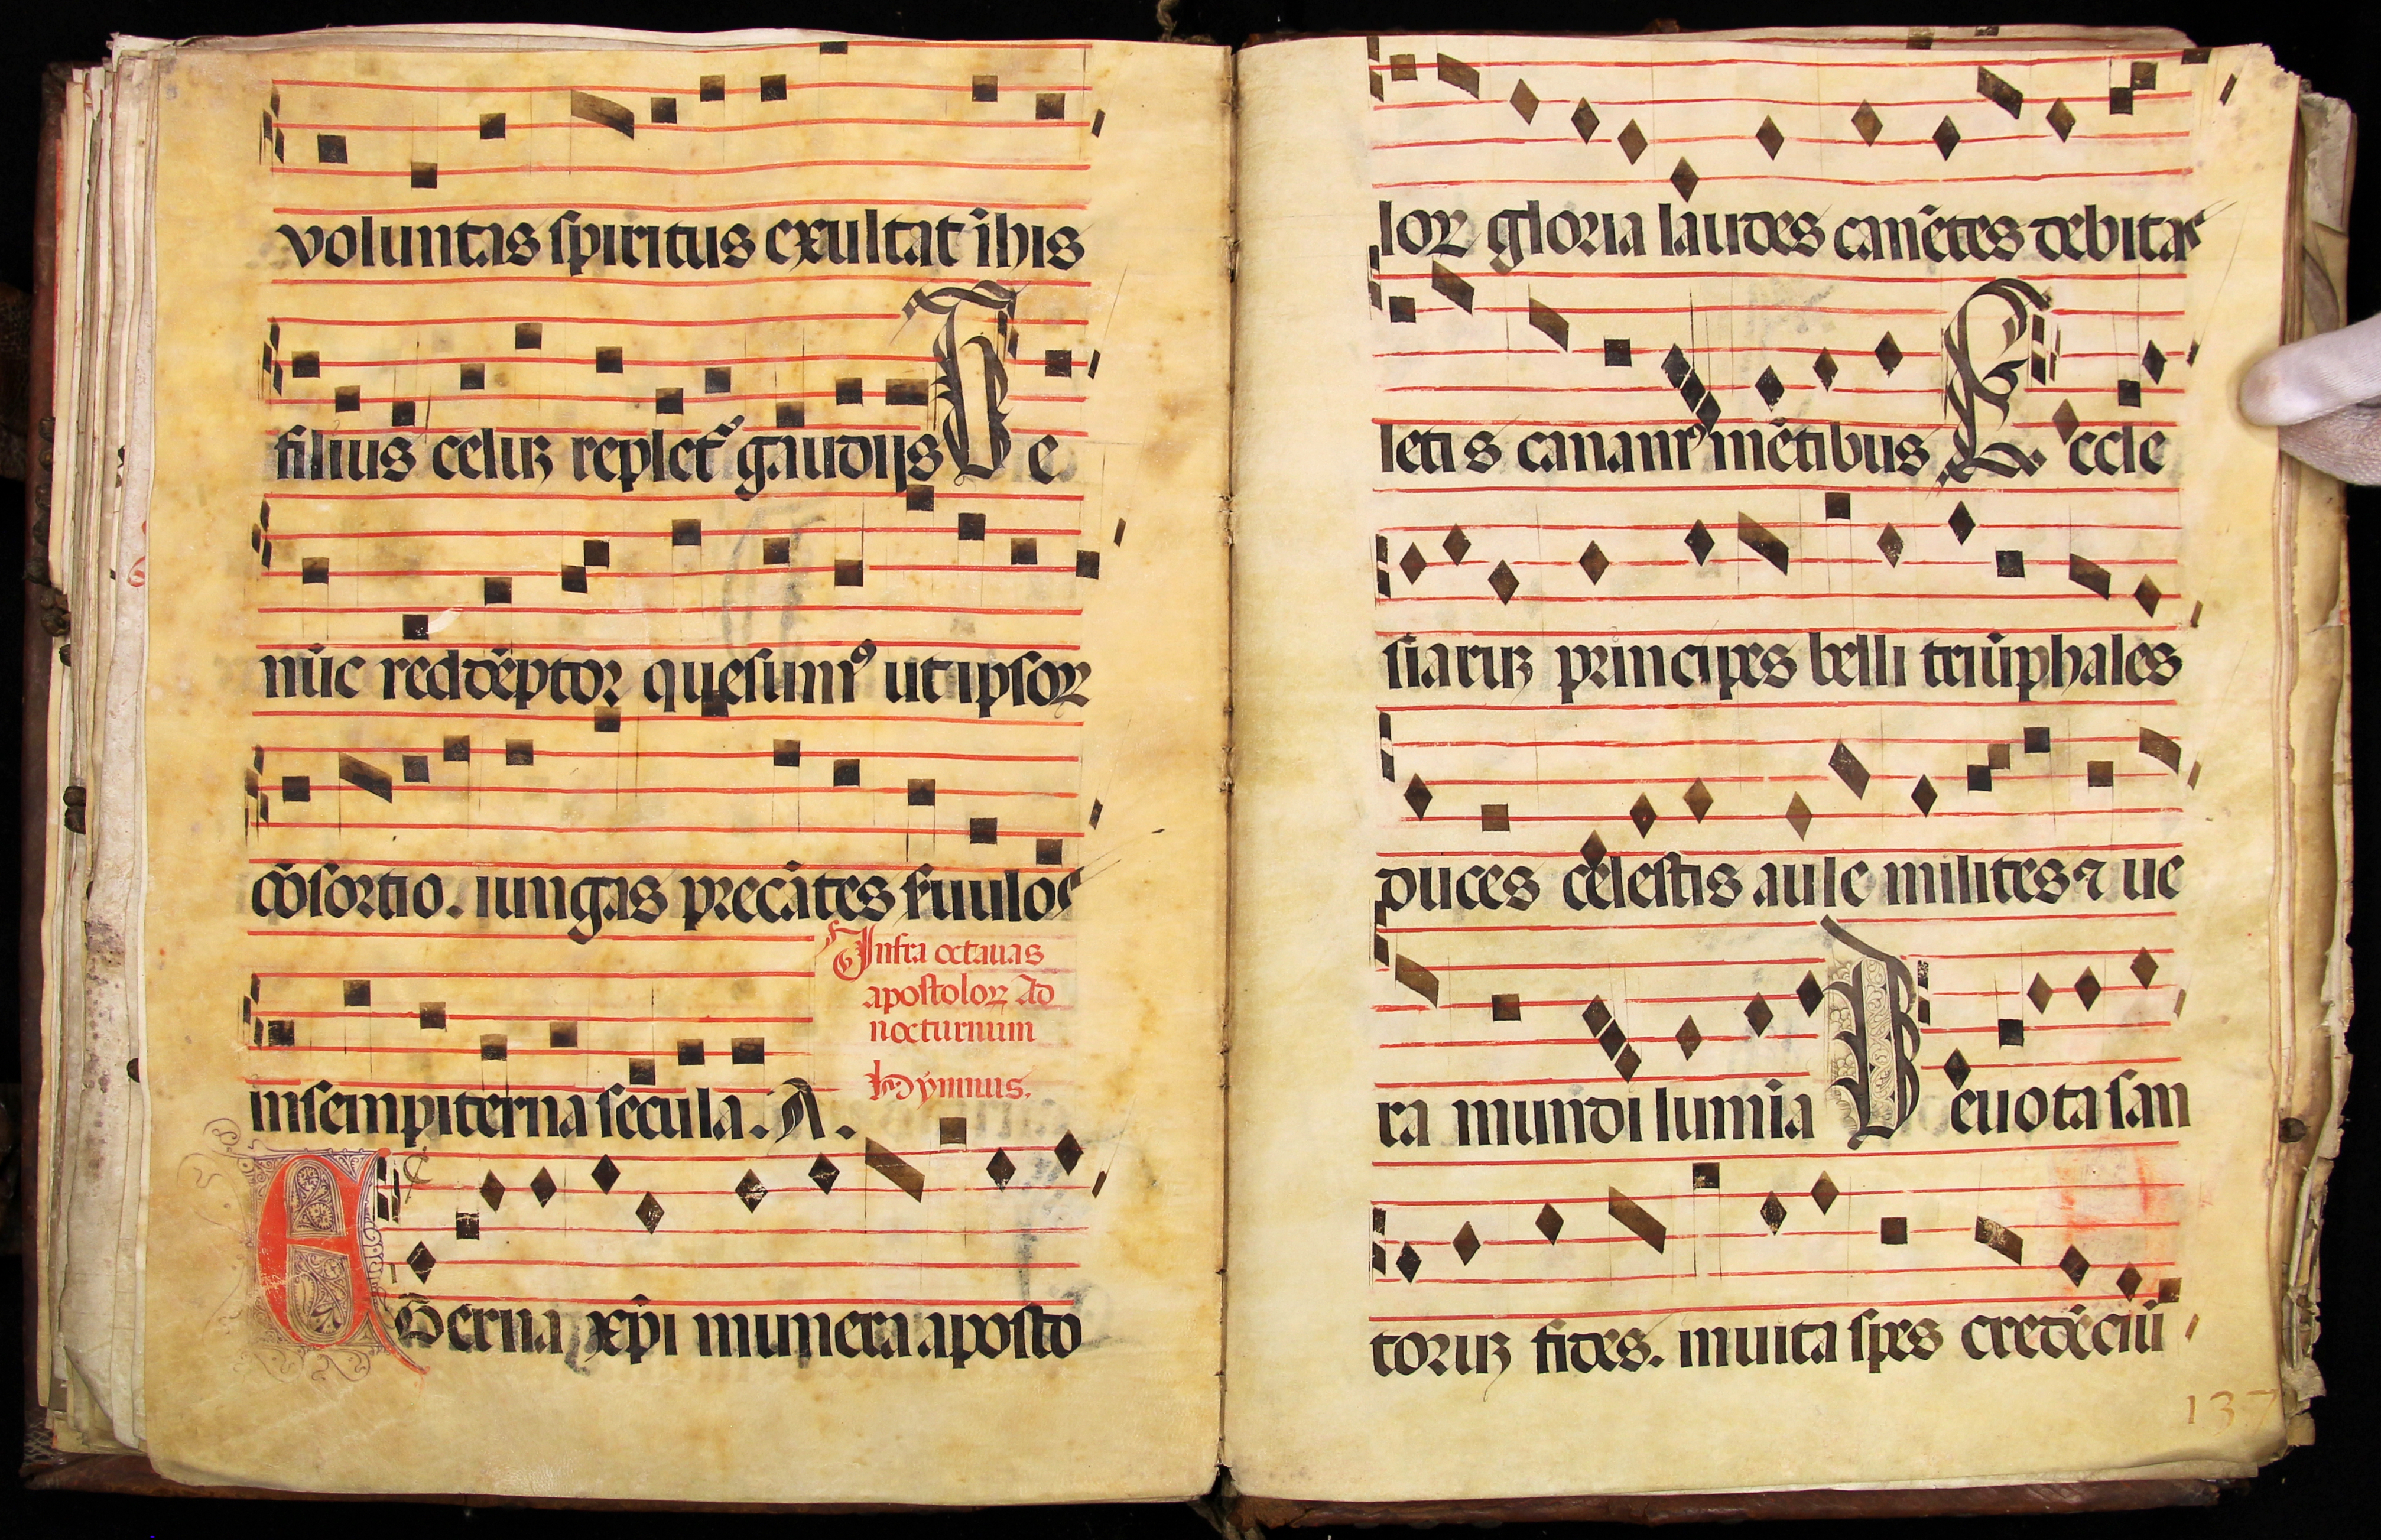 voluntas spiritus exultat ĩ his
filius celuꝝ replet᷒ gaudijs Te
nũc redẽptor quesumꝰ ut ipsoꝝ
cõsortio. iungas precãtes seruulos
in sempiterna secula. A.
Infra octauas
apostoloꝝ Ad
nocturnum
hymnus.
AEterna xp̃i munera aposto
loꝝ gloria laudes canẽtes debitas
letis canamꝰ mẽtibus Eccle
siaruꝝ principes belli triũphales
duces celestis aule milites ⁊ ue
ra mundi lumĩa Deuota san
toruꝝ fides. inuita spes credẽciũ
137